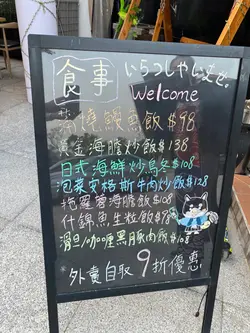 食事 いらっしゃいませ。
Welcome
蒲燒鰻魚飯$98
黃金海膽炒飯$138
日式海鮮炒烏冬$108
泡菜安格斯牛肉炒飯$128
拖羅蓉海膽飯$108
什錦魚生粒飯$98
滑旦/咖喱黑豚肉飯$108
外賣自取 9折優惠